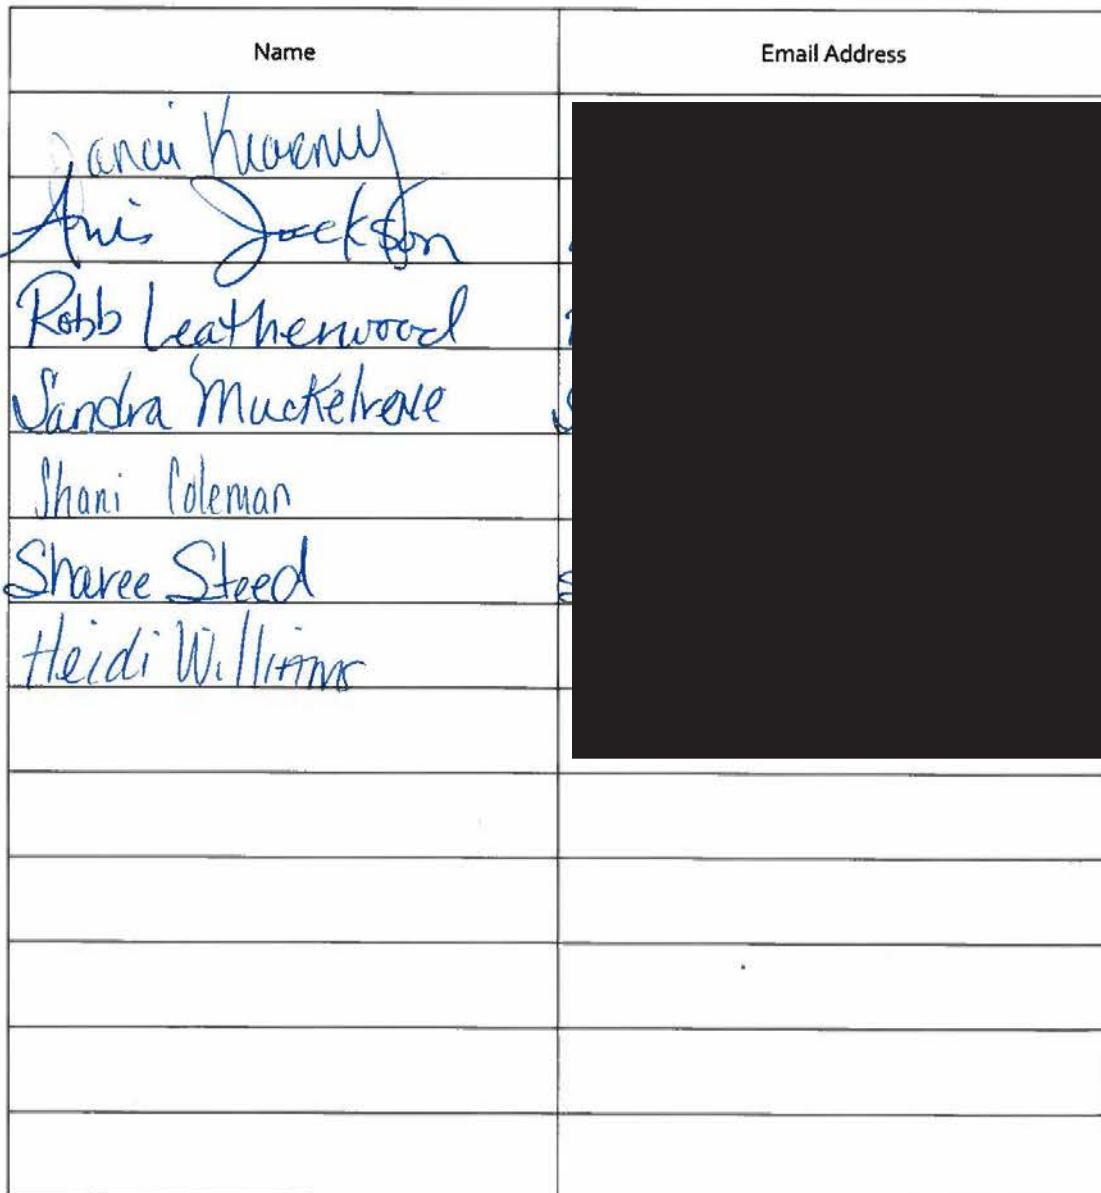 Name Email Address
Janci
Jackson
Robb Leatherwood
Sandra
Shani Coleman
Sharee Steed
Heidi Williams